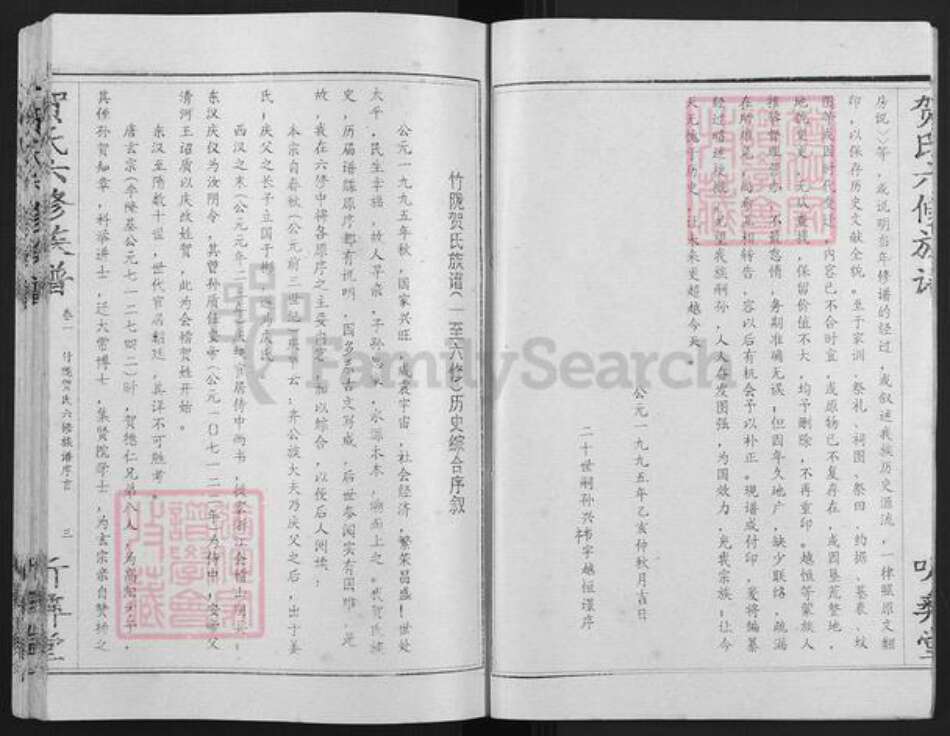 贺氏六修族谱
房说》等，或说明当年修谱的经过，或叙述我族历史源流，一律照原文翻
印，以保存历史文献全貌。至于家训、祭礼、祠图、祭田、约据、墓表、坟
图等或因时代变迁，内容已不合时宜，或原物已不复存在，或因垦荒整地，
地貌变更，无从查找，保留价值不大，均予删除，不再重印。越恒等蒙族人
推举督理谱务，不敢怠惰，务期准确无误，但因年久地广，缺少联络，疏漏
在所难免，尚希互相转告，容以后有机会予以补正。现谱成付印，爰将编纂
天无愧于历史，让未来更超越今天。
公元一九九五年乙亥仲秋月吉日
二十世嗣孙兴祎字越恒谨序
竹陇贺氏族谱（一至六修）历史综合序叙
公元一九九五年秋，国家兴旺，威震宇宙，社会经济，繁荣昌盛！世处
太平，民生幸福，故人早亲，子孙
史，历届谱牒原序都有说明，因多系古文写成，后世参阅实有困难，是
故，我在六修中将各原序之主要内容，加以综合，以便后人浏读：
本宗自春秋（公元前三世纪
云：齐公族大夫乃庆父之后，出于姜
氏，庆父之长子立国于
西汉之末（公元元年
东汉庆仪为汝阴令，其曾孙质任安帝（公元一〇七—一二二年）为侍中，安帝父
清河王诏质以庆改姓贺，此为会稽贺姓开始。
东汉至隋数十世，世代官居朝廷，其详不可胜考。
唐玄宗（李隆基公元七一二—七四二）时，贺德仁兄弟八人，为高
其侄孙贺知章，科举进士，迁太常博士，集贤院学士，为玄宗亲自赞扬之
贺氏六修族谱
卷一
竹陇贺氏六修族谱序言
三
FamilySearch